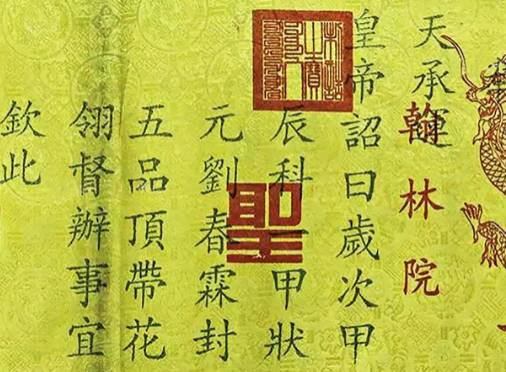 天承運
翰林院
皇帝詔曰歲次甲
辰科一甲狀
聖
元劉春霖封
五品頂帶花
翎督辦事宜
欽此